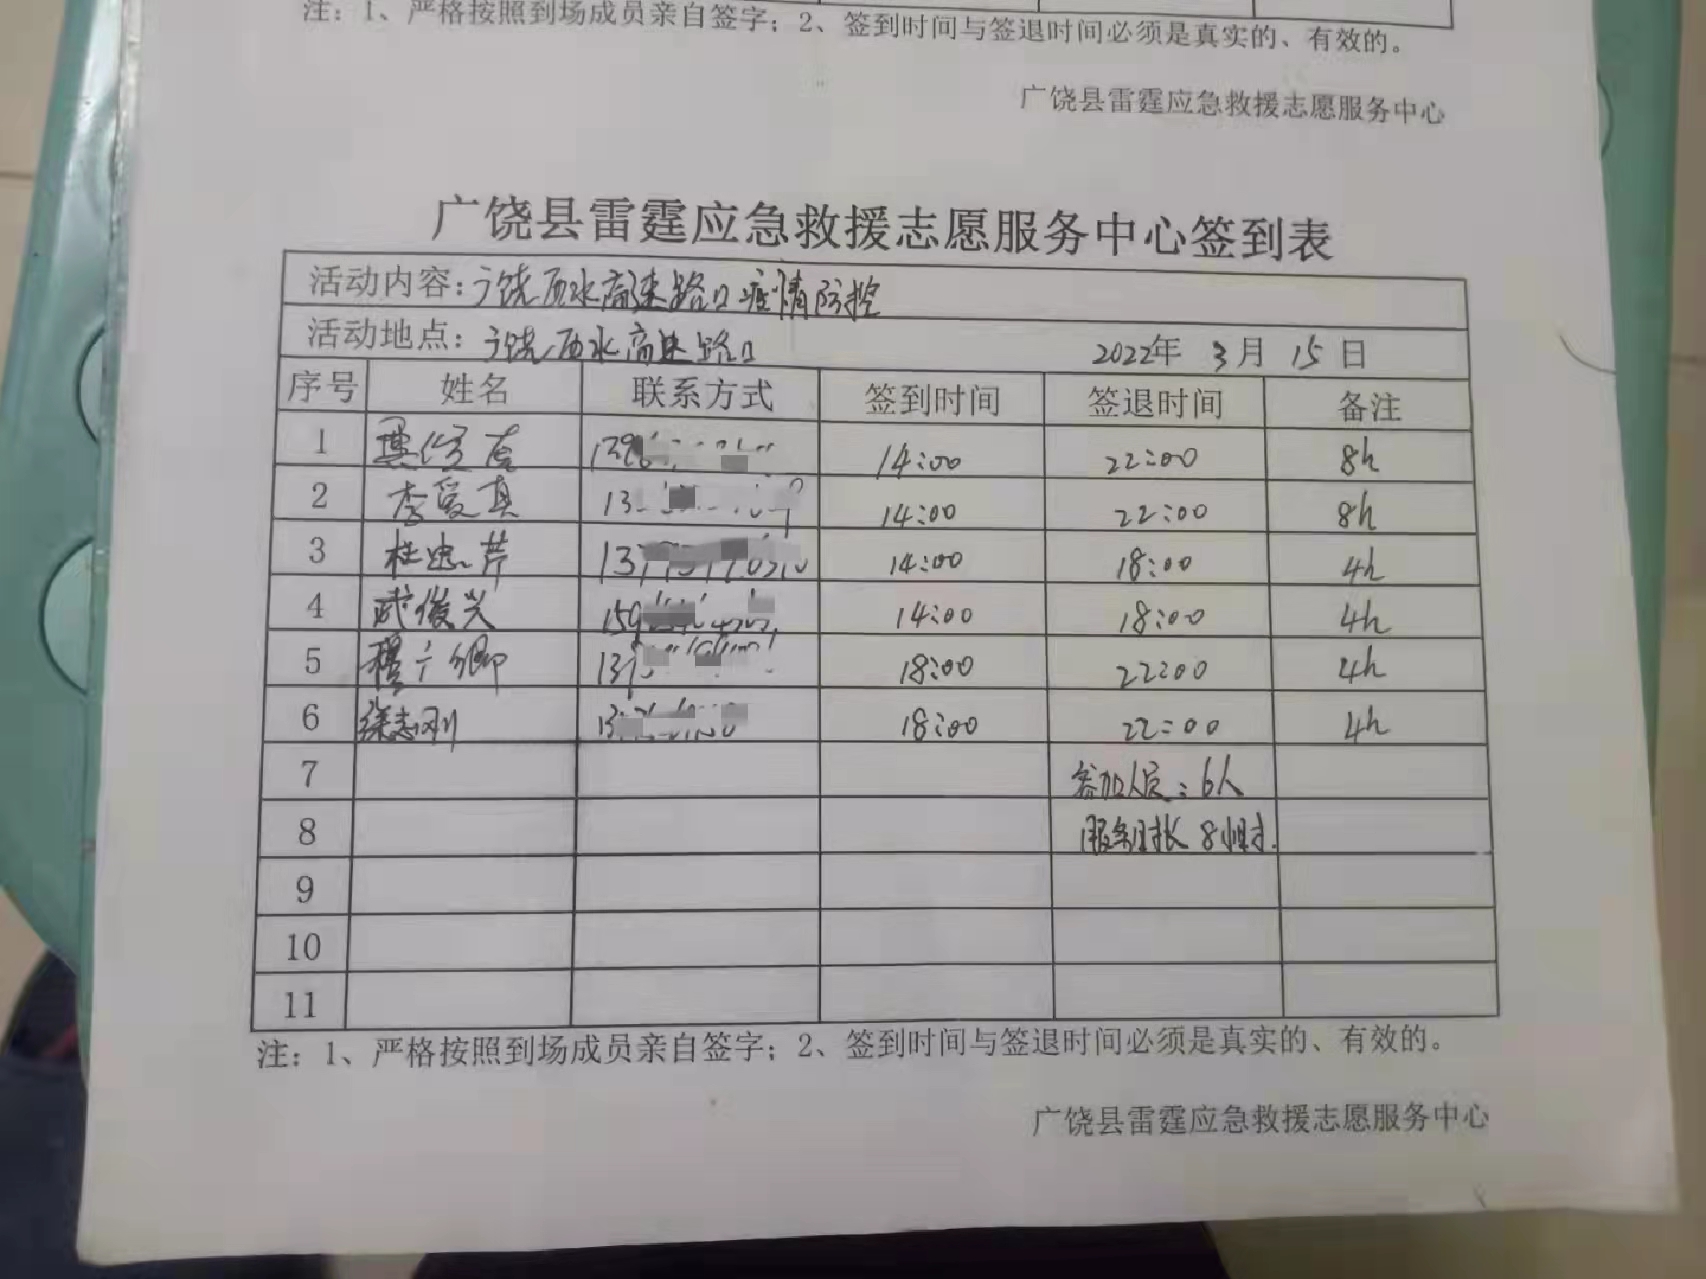 注：1、严格按照到场成员亲自签字；2、签到时间与签退时间必须是真实的、有效的。
广饶县雷霆应急救援志愿服务中心
广饶县雷霆应急救援志愿服务中心签到表
活动内容：广饶西水高速路口疫情防控
活动地点：广饶西水高速路口 2022年 3月 15日
序号 姓名 联系方式 签到时间 签退时间 备注
1 14:00 22:00 8h
2 李爱真 13 14:00 22:00 8h
3 杜忠芹 13 14:00 18:00 4h
4 武俊兴 159 14:00 18:00 4h
5 13 18:00 22:00 4h
6 徐志刚 13 18:00 22:00 4h
7 参加人员：6人
8 服务时长 8小时.
9
10
11
注：1、严格按照到场成员亲自签字；2、签到时间与签退时间必须是真实的、有效的。
广饶县雷霆应急救援志愿服务中心